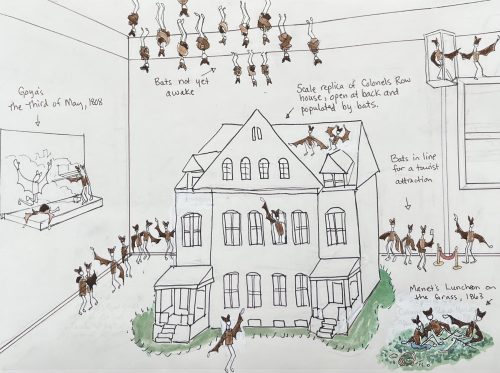 Goya's
The Third of May, 1808
Bats not yet
awake
Scale replica of Colonels Row
house, open at back and
populated by bats.
Bats in line
for a tourist
attraction
Manet's Luncheon on
the Grass, 1863